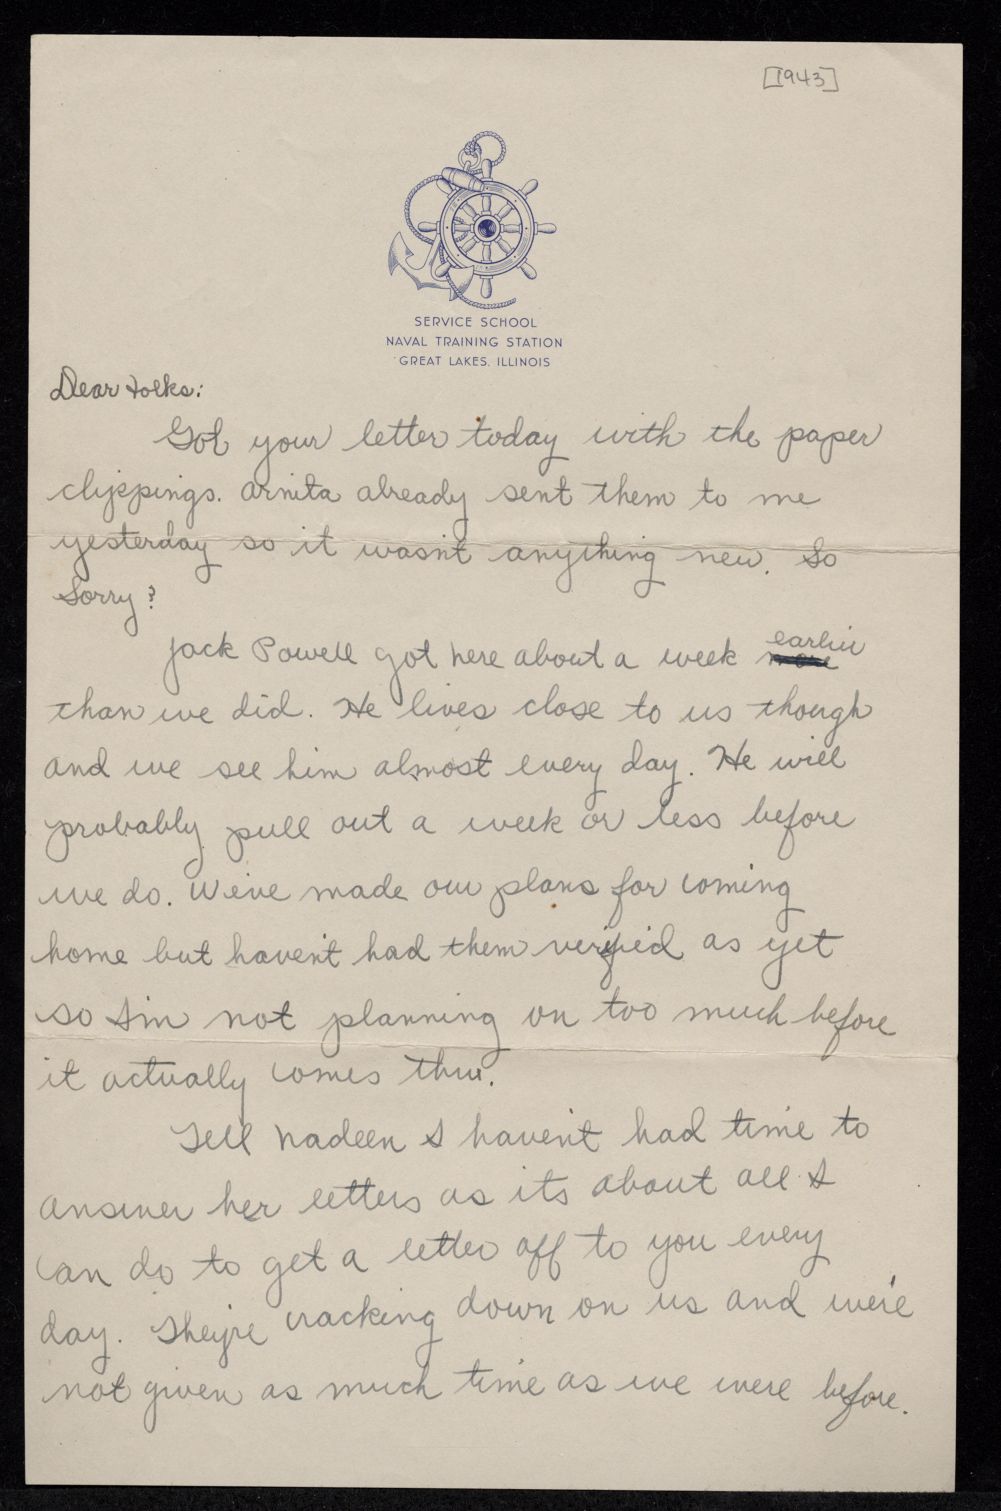 [1943]
SERVICE SCHOOL
NAVAL TRAINING STATION
GREAT LAKES, ILLINOIS
Dear Folks:
Got your letter today with the paper
clippings. Arnita already sent them to me
yesterday so it wasn't anything new. So
Sorry?
Jack Powell got here about a week earlier
than we did. He lives close to us though
and we see him almost every day. He will
probably pull out a week or less before
we do. We've made our plans for coming
home but haven't had them verified as yet
so I'm not planning on too much before
it actually comes thru.
Tell Nadeen I haven't had time to
answer her letters as its about all I
can do to get a letter off to you every
day. They're cracking down on us and we're
not given as much time as we were before.